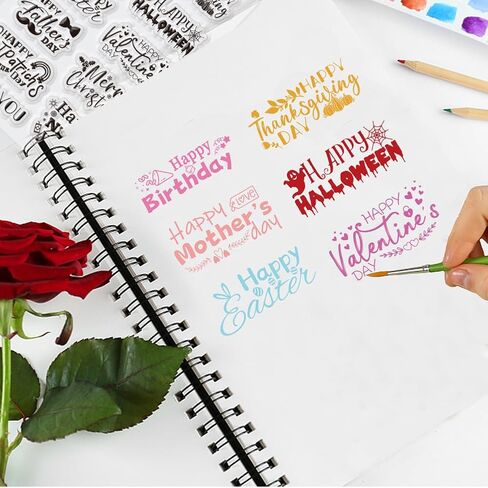 HAPPY
Father's
DAY
HAPPY
Valentine's
DAY
HAPPY
HALLOWEEN
HAPPY
Patrick's
DAY
Merry
Christ
YOU
Ha
HAPPY
Thanksgiving
DAY
Happy
Birthday
HAPPY
HALLOWEEN
Happy & LOVE
Mother's
day
HAPPY
Valentine's
DAY
Happy
Easter